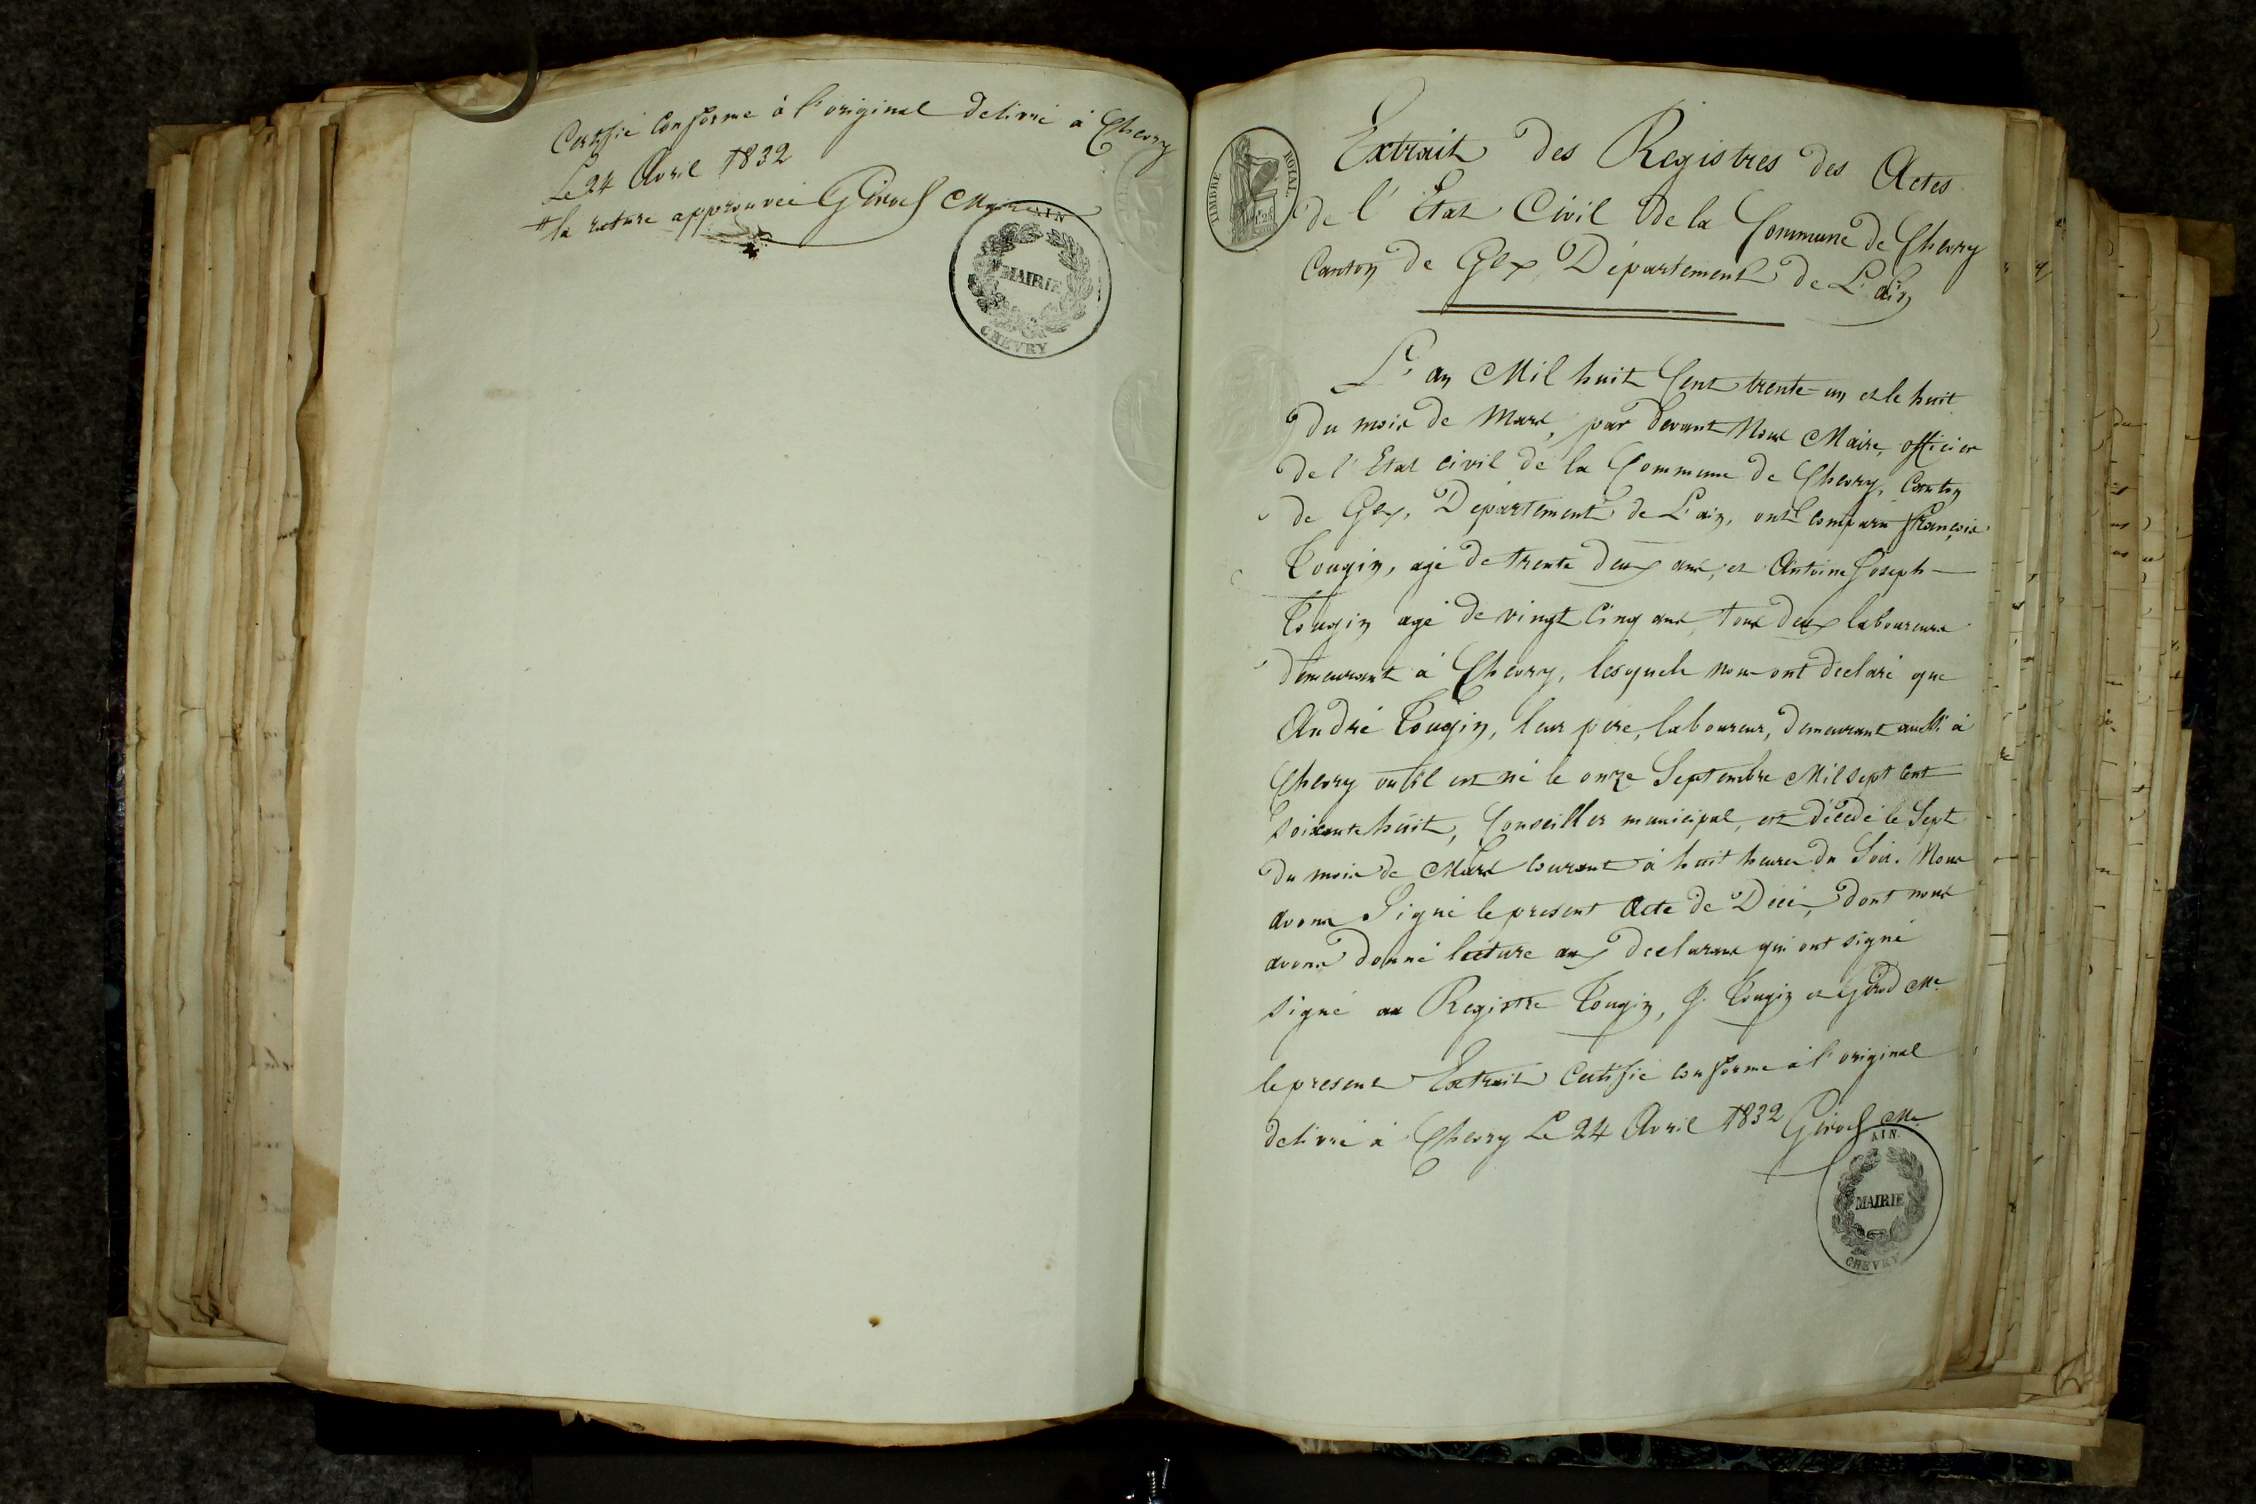 Certifié Conforme à l'original delivré à Chevry
Le 24 Avril 1832
la rature approuvée Girod Maire
AIN
MAIRIE
CHEVRY
TIMBRE ROYAL
Extrait des Registres des Actes
de l'Etat Civil de la Commune de Chevry
Canton de Gex Département de L'ain
L'an Mil huit Cent trente-un et le huit
du mois de Mars, par devant Nous Maire, officier
de l'Etat civil de la Commune de Chevry, Canton
de Gex, Département de L'ain, ont comparu françois
Tougin, agé de trente deux ans, et Antoine Joseph
Tougin agé de vingt Cinq ans, tous deux laboureurs
demeurant à Chevry, lesquels nous ont declaré que
André Tougin, leur père, laboureur, demeurant aussi à
Chevry où il est né le onze Septembre Mil sept Cent
soixante huit, Conseiller municipal, est décédé le Sept
du mois de Mars courant à huit heures du Soir. Nous
avons Signé le present Acte de Décé, dont nous
avons donné lecture aux declarans qui ont signé
signé au Registre Tougin, J. Tougin et Girod Me
le present Extrait Certifié conforme à l'original
delivré à Chevry Le 24 Avril 1832 Girod Me
AIN.
MAIRIE
CHEVRY